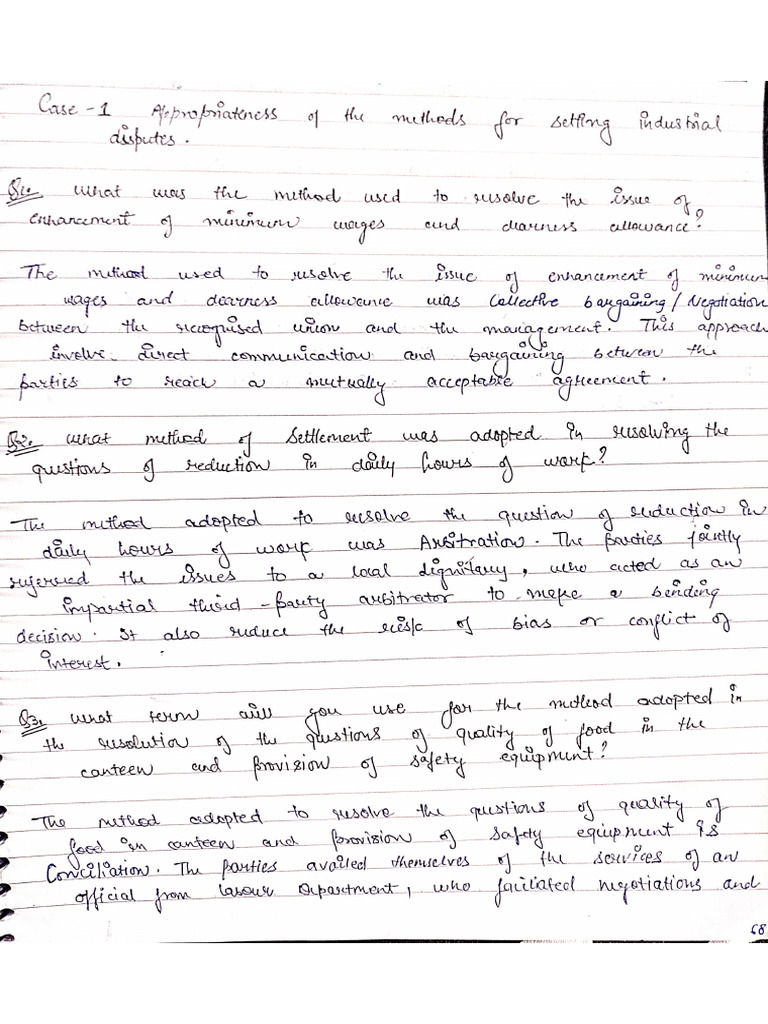 Case - 1 Appropriateness of the methods for settling industrial
disputes.
Q1. What was the method used to resolve the issue of
enhancement of minimum wages and dearness allowance?
The method used to resolve the issue of enhancement of minimum
wages and dearness allowance was Collective bargaining / Negotiation
between the recognised union and the management. This approach
involve direct communication and bargaining between the
parties to reach a mutually acceptable agreement.
Q2. What method of Settlement was adopted in resolving the
questions of reduction in daily hours of work?
The method adopted to resolve the question of reduction in
daily hours of work was Arbitration. The parties jointly
referred the issues to a local dignitary, who acted as an
impartial third - party arbitrator to make a binding
decision. It also reduce the risk of bias or conflict of
interest.
Q3. What term will you use for the method adopted in
the resolution of the questions of quality of food in the
canteen and provision of safety equipment?
The method adopted to resolve the questions of quality of
food in canteen and provision of safety equipment is
Conciliation. The parties availed themselves of the services of an
official from labour Department, who facilated negotiations and
68